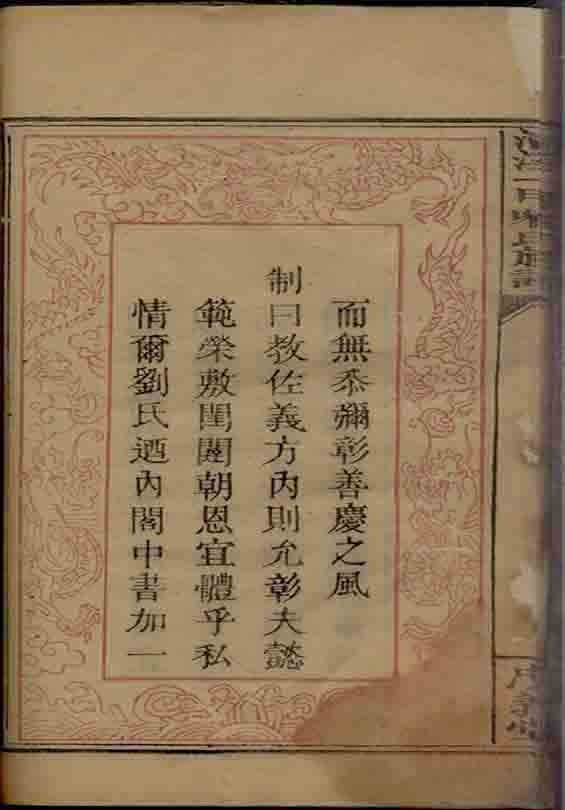 而無忝彌彰善慶之風
制曰教佐義方內則允彰夫懿
範榮敷閨闥朝恩宜體乎私
情爾劉氏迺內閣中書加一